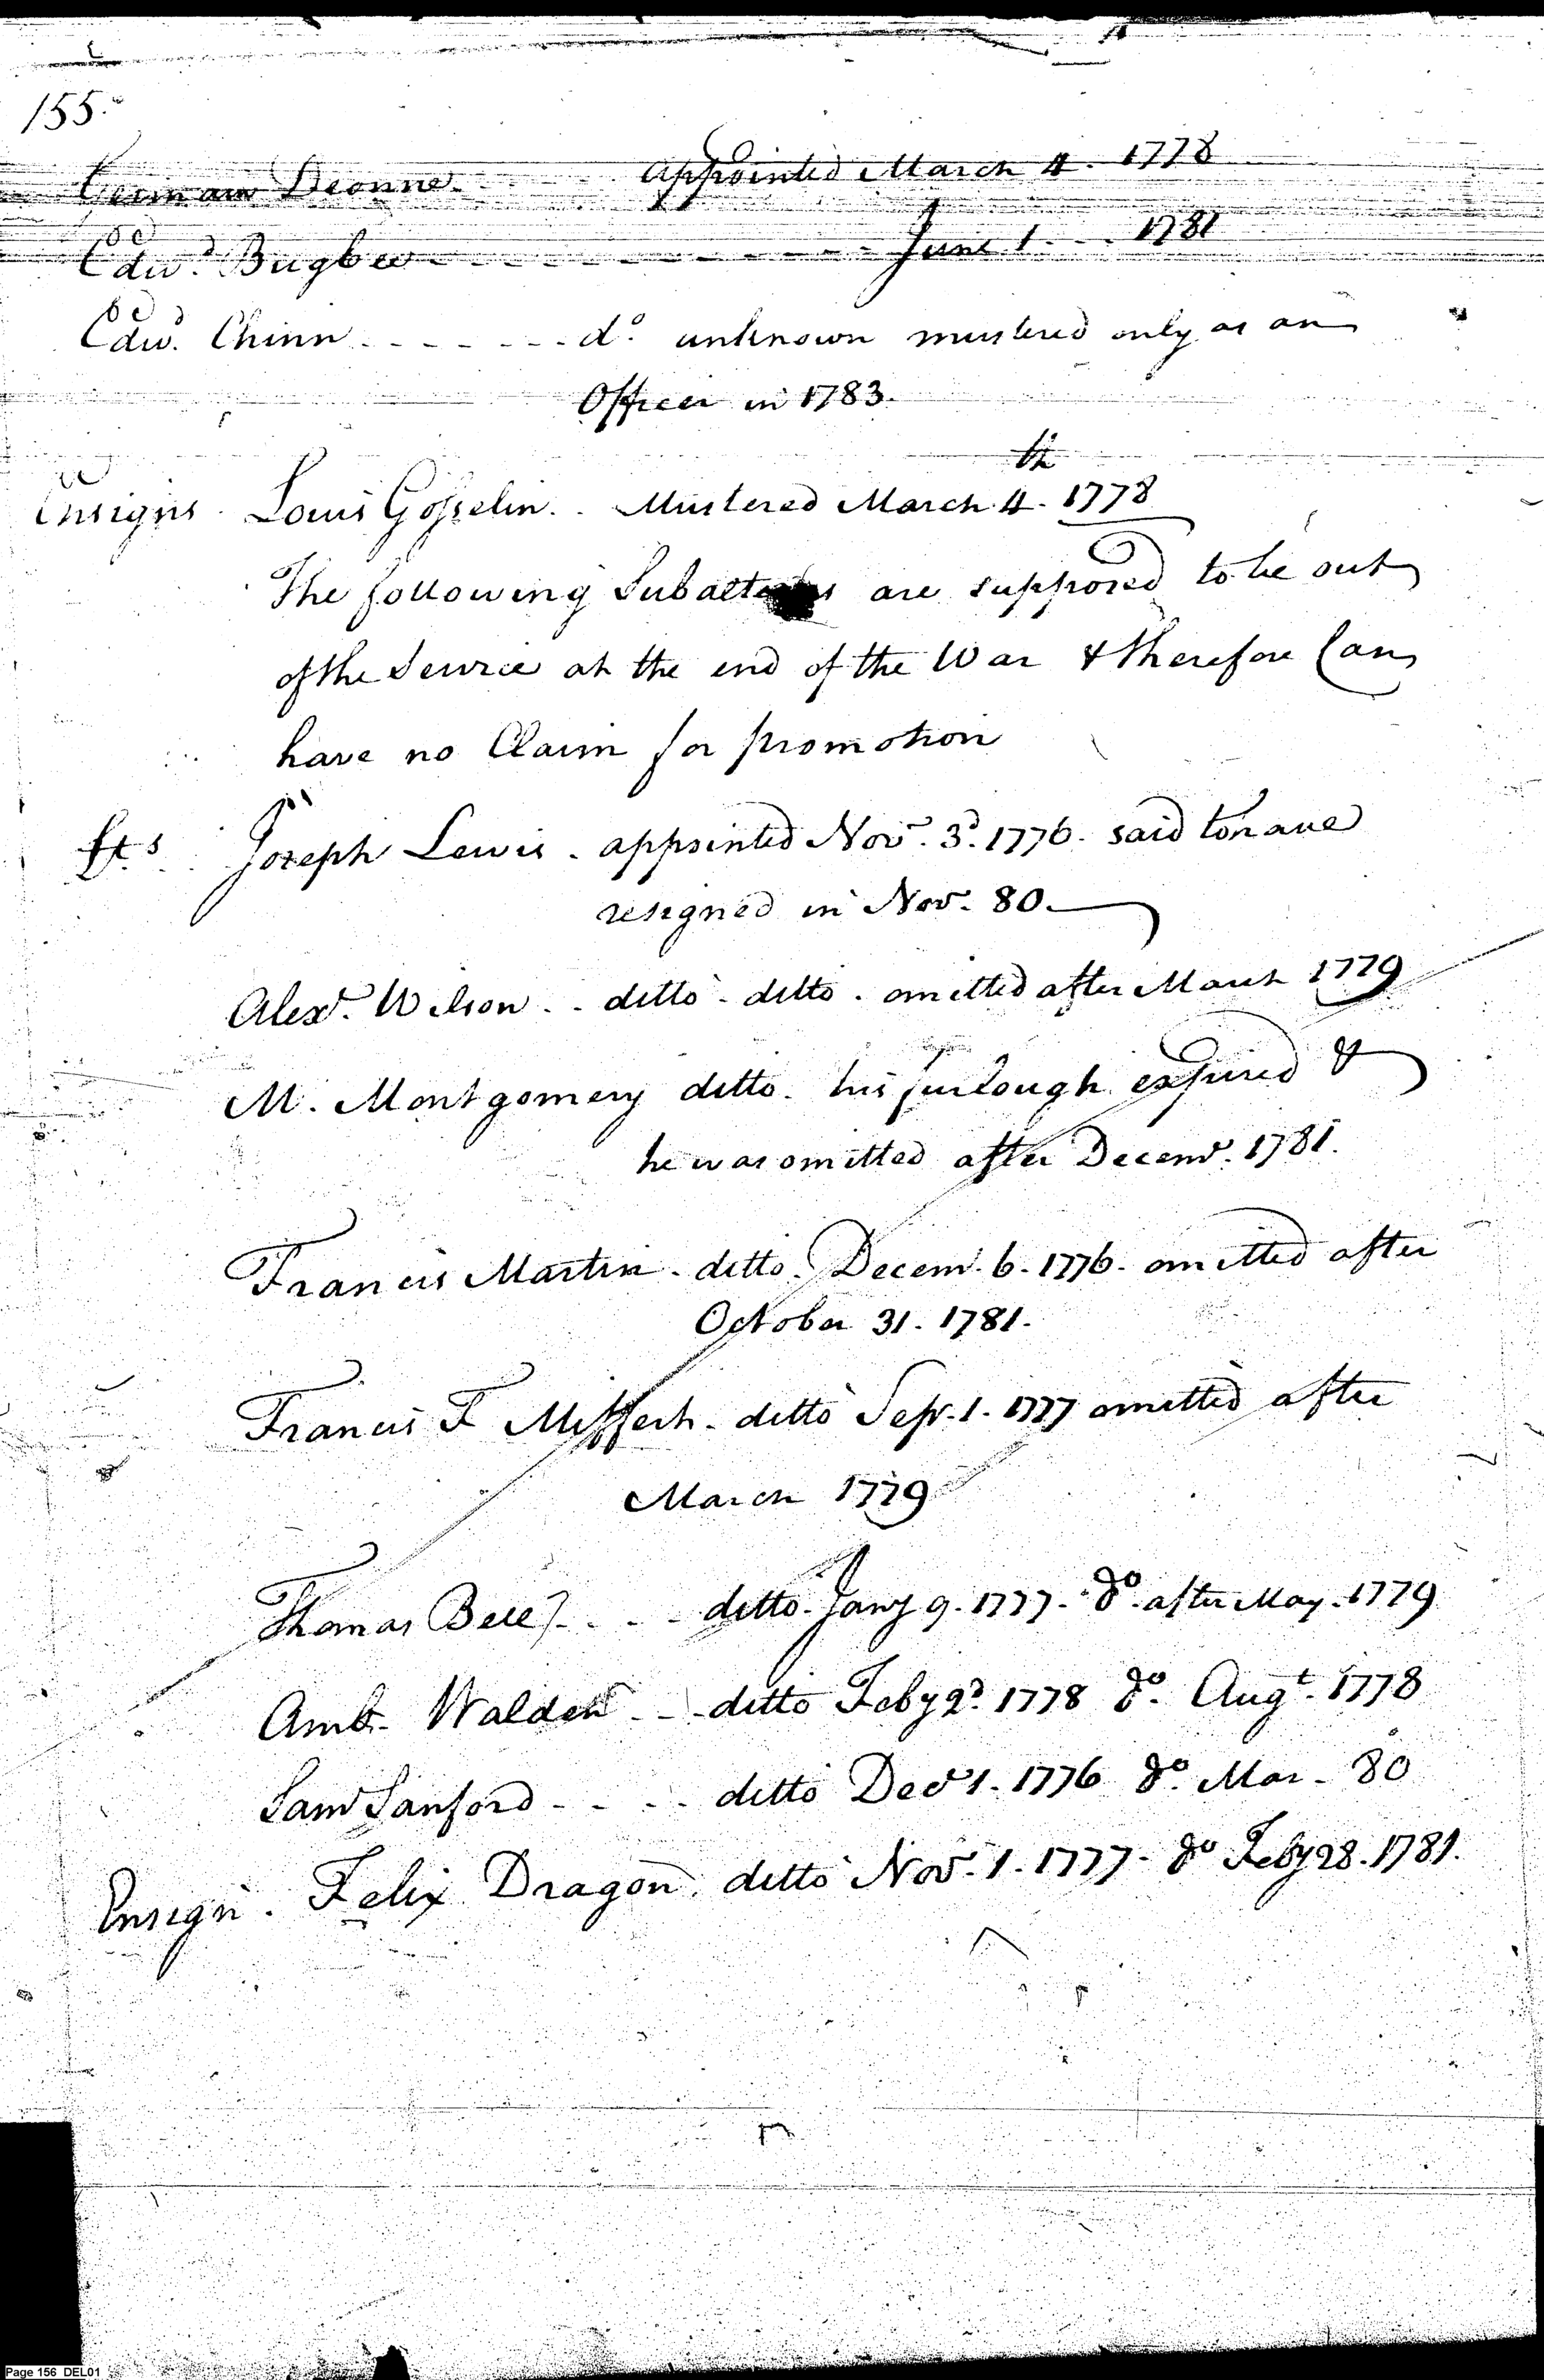 155.
Germain Dionne. appointed March 4. 1778
Edwd. Bugbee - - - - - - - - - June 1. - - 1781
Edwd. Chinn - - - - - - - do. unknown mustered only as an
Officer in 1783.
Ensigns. Louis Gosselin. - Mustered March 4th. 1778
The following Subalterns are supposed to be out
of the Service at the end of the War & therefore Can
have no Claim for promotion
Lts. Joseph Lewis. appointed Novr. 3d. 1776. said to have
resigned in Novr. 80.
Alexr. Wilson. - ditto - ditto. omitted after March 1779
M. Montgomery ditto. his furlough expired &
he was omitted after Decemr. 1781.
Francis Martin. ditto. Decemr. 6. 1776. omitted after
October 31. 1781.
Francis F ditto Sepr. 1. 1777 omitted after
March 1779
Thomas Bell - - - - ditto. Jany 9. 1777. do. after May. 1779
Amb. Walden - - ditto Feby 2d. 1778 do. Augt. 1778
Saml Sanford - - - - ditto Decr 1. 1776 do. Mar. 80
Ensign. Felix Dragon. ditto Novr. 1. 1777. do Feby 28. 1781.
Page 156 DEL01